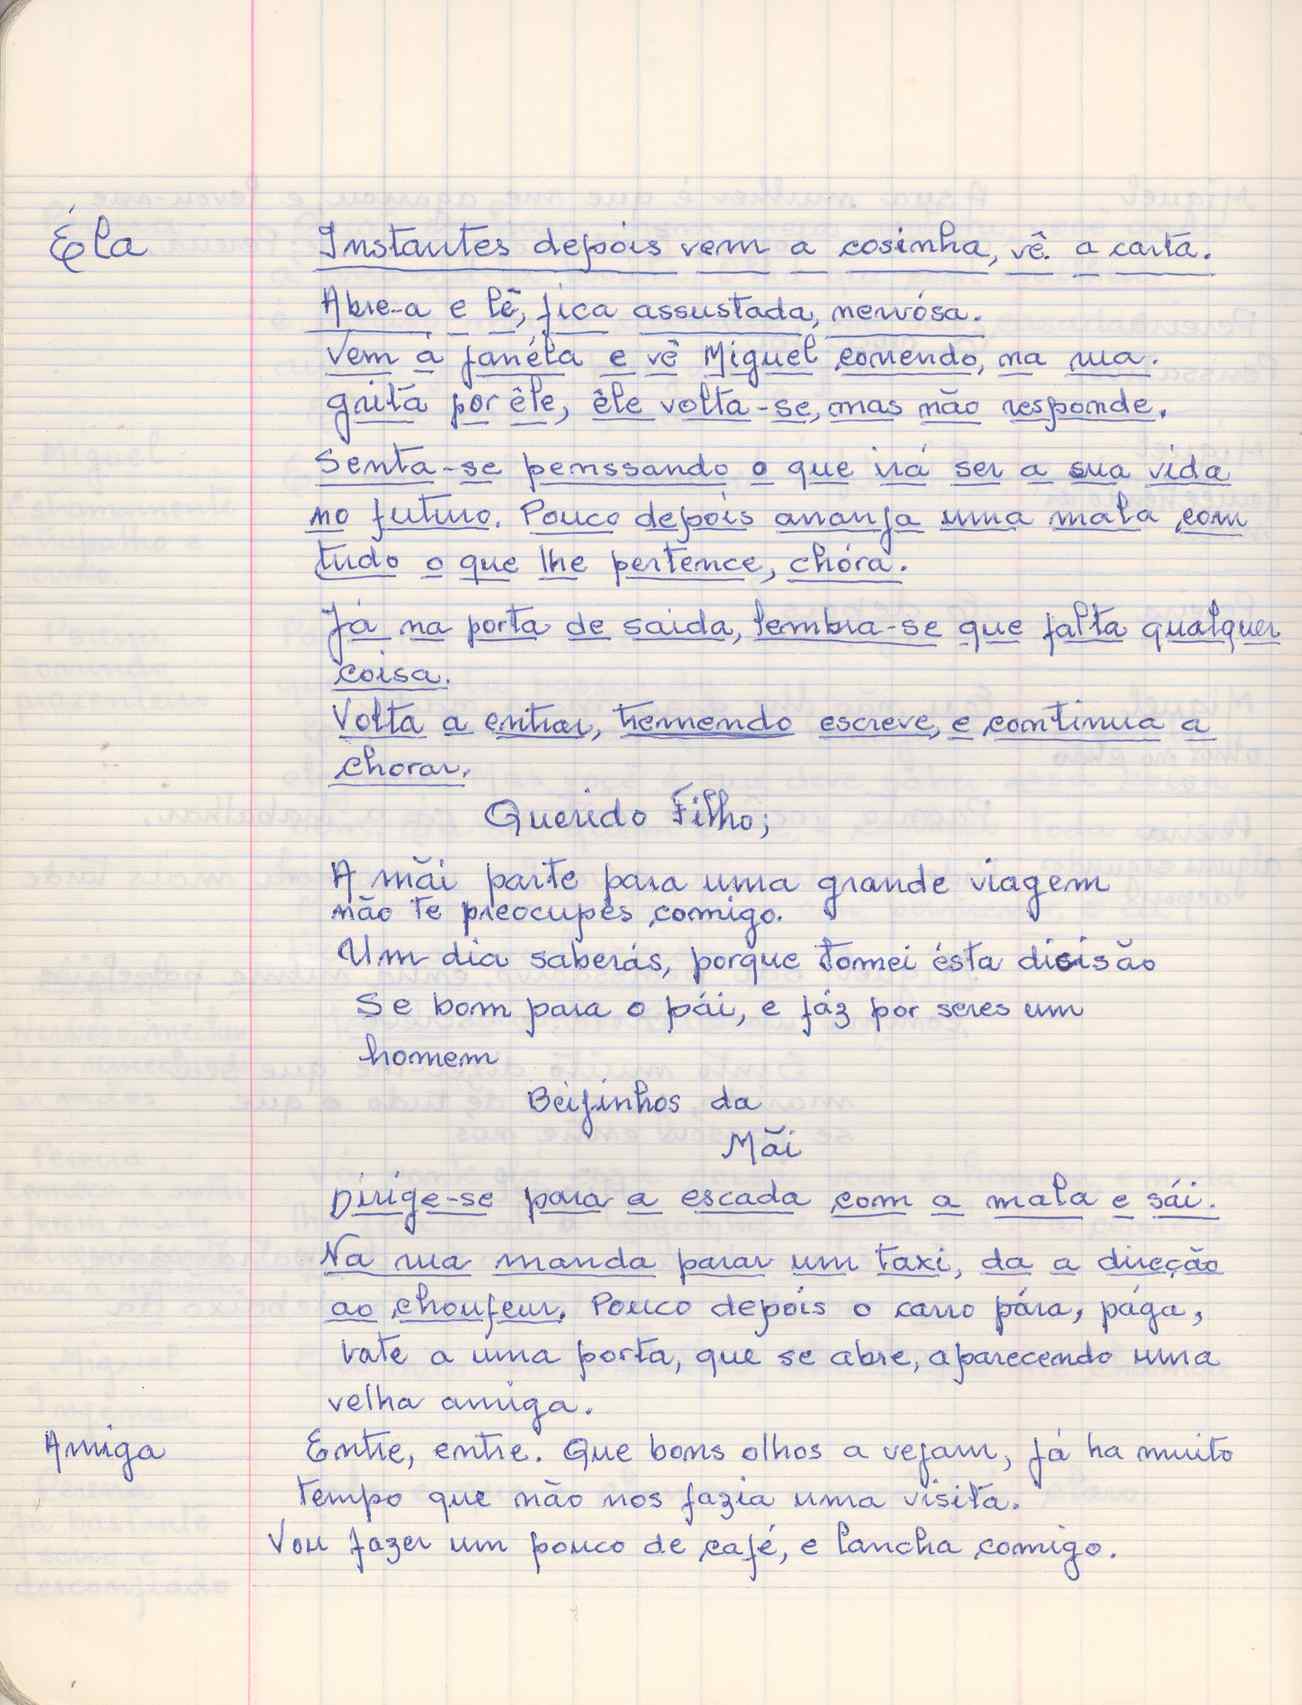 Éla Instantes depois vem a cosinha, vê. a carta.
Abre-a e lê, fica assustada, nervósa.
Vem á janéla e vê Miguel correndo, na rua.
grita por êle, êle volta-se, mas não responde.
Senta-se penssando o que irá ser a sua vida
no futuro. Pouco depois arranja uma mala com
tudo o que lhe pertence, chóra.
Já na porta de saida, lembra-se que falta qualquer
coisa.
Volta a entrar, tremendo escreve, e continua a
chorar.
Querido Filho;
A mãi parte para uma grande viagem
não te preocupes comigo.
Um dia saberás, porque tomei ésta dicisão
Se bom para o pái, e fáz por seres um
homem
Beijinhos da
Mãi
Dirige-se para a escada com a mala e sái.
Na rua manda parar um taxi, da a direcção
ao choufeur. Pouco depois o carro pára, pága,
bate a uma porta, que se abre, aparecendo uma
velha amiga.
Amiga Entre, entre. Que bons olhos a vejam, já ha muito
tempo que não nos fazia uma visita.
Vou fazer um pouco de café, e lancha comigo.